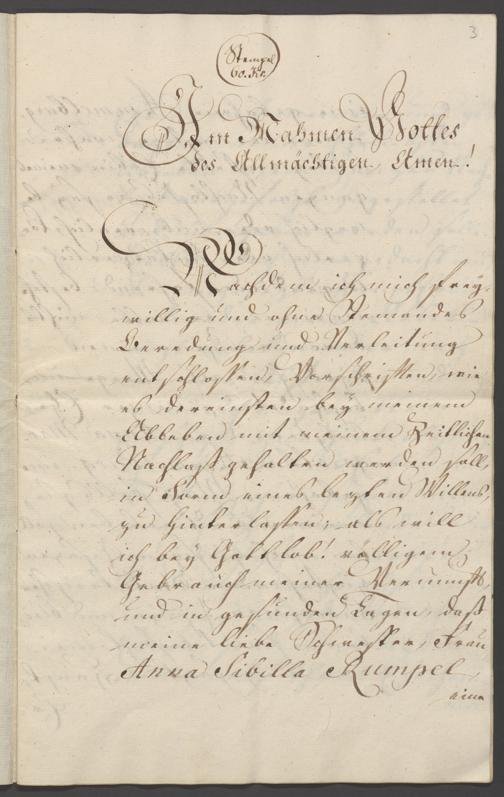 3
Stempel
60. Kr.
Im Nahmen Gottes
des Allmächtigen, Amen.!
Nachdem ich mich frey-
willig und ohne Jemandes
Beredung und Verleitung
entschlossen, Vorschriften, wie
es dereinsten bey meinem
Ableben mit meinem Zeitlichen
Nachlaß gehalten werden soll,
in Form eines lezten Willens,
zu hinterlassen; als will
ich bey Gottlob! völligem
Gebrauch meiner Vernunft,
und in gesunden Tagen, daß
meine liebe Schwester, Frau
Anna Sibilla Rumpel,
eine